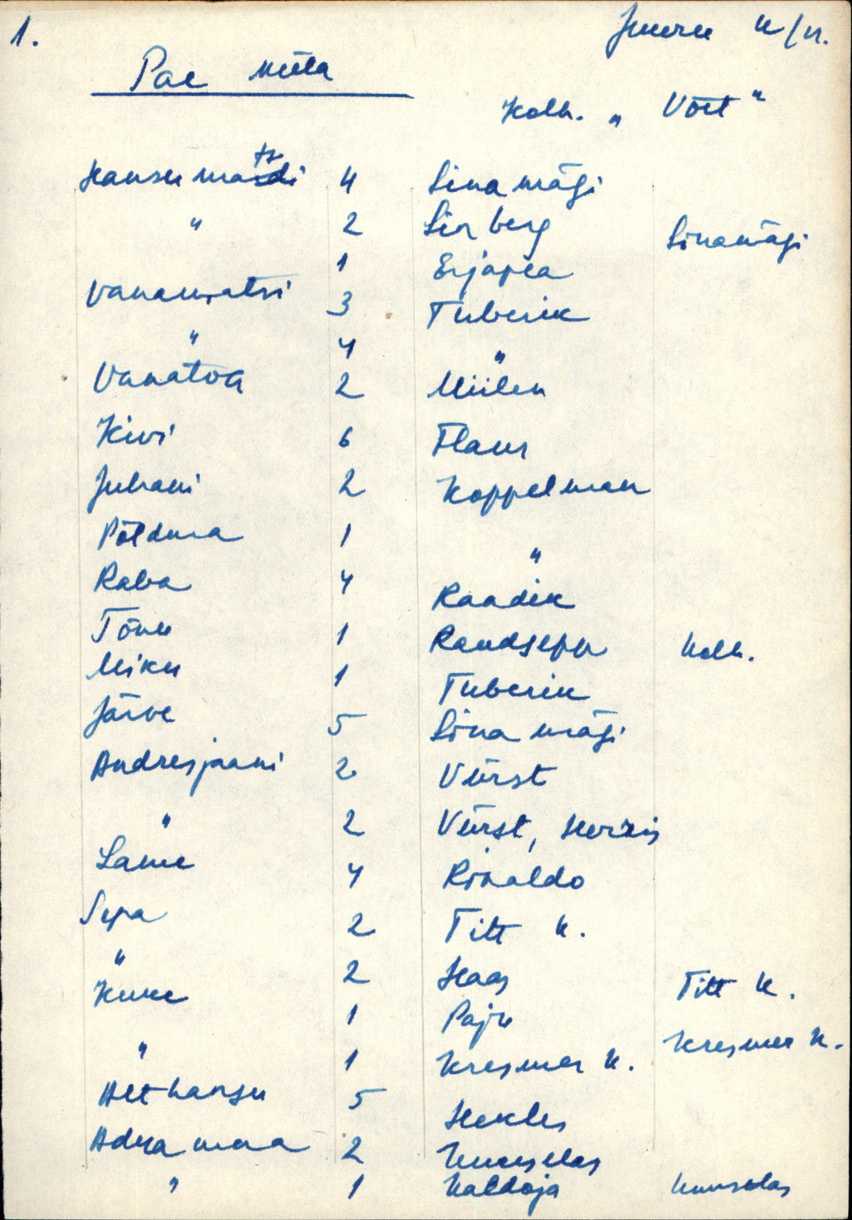 1. Juuru k/n.
Pae küla
Kolh. „ Võit "
Hansumardi 4 Sinamägi
" 2 Siirberg Sinamägi
1 Erjapea
Vanamatsi 3 Tuberik
" 4 "
Vanatoa 2 Miilen
Kivi 6 Flaur
Juhani 2 Koppelman
Põldma 1 "
Raba 4 Raadik
Tõnu 1 Raudsepp kolh.
Miku 1 Tuberik
Järve 5 Sinamägi
Andresjaani 2 Vürst
" 2 Vürst,
Laine 4 Rinaldo
Sepa 2 Titt K.
" 2 Haas Titt K.
Kuke 1 Paju
" 1 Kresmer K. Kresmer K.
Althansu 5
Adra maa 2 Kuuselas
" 1 Kaldoja Kuuselas